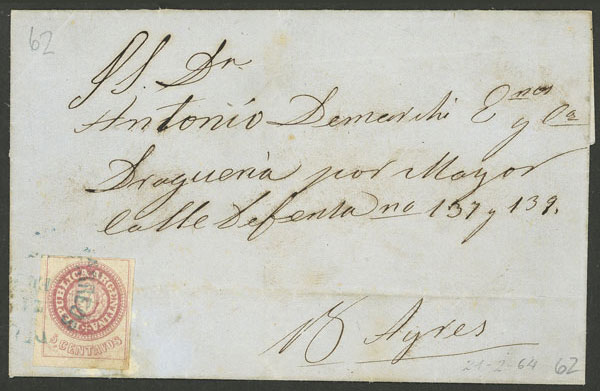 62
SS. Dn
Antonio Demarchi Ermos
y Ca
Drogueria por Mayor
Calle Defensa no 137 y 139.
Bs Ayres
REPUBLICA ARGENTINA
5 CENTAVOS
21-2-64 62